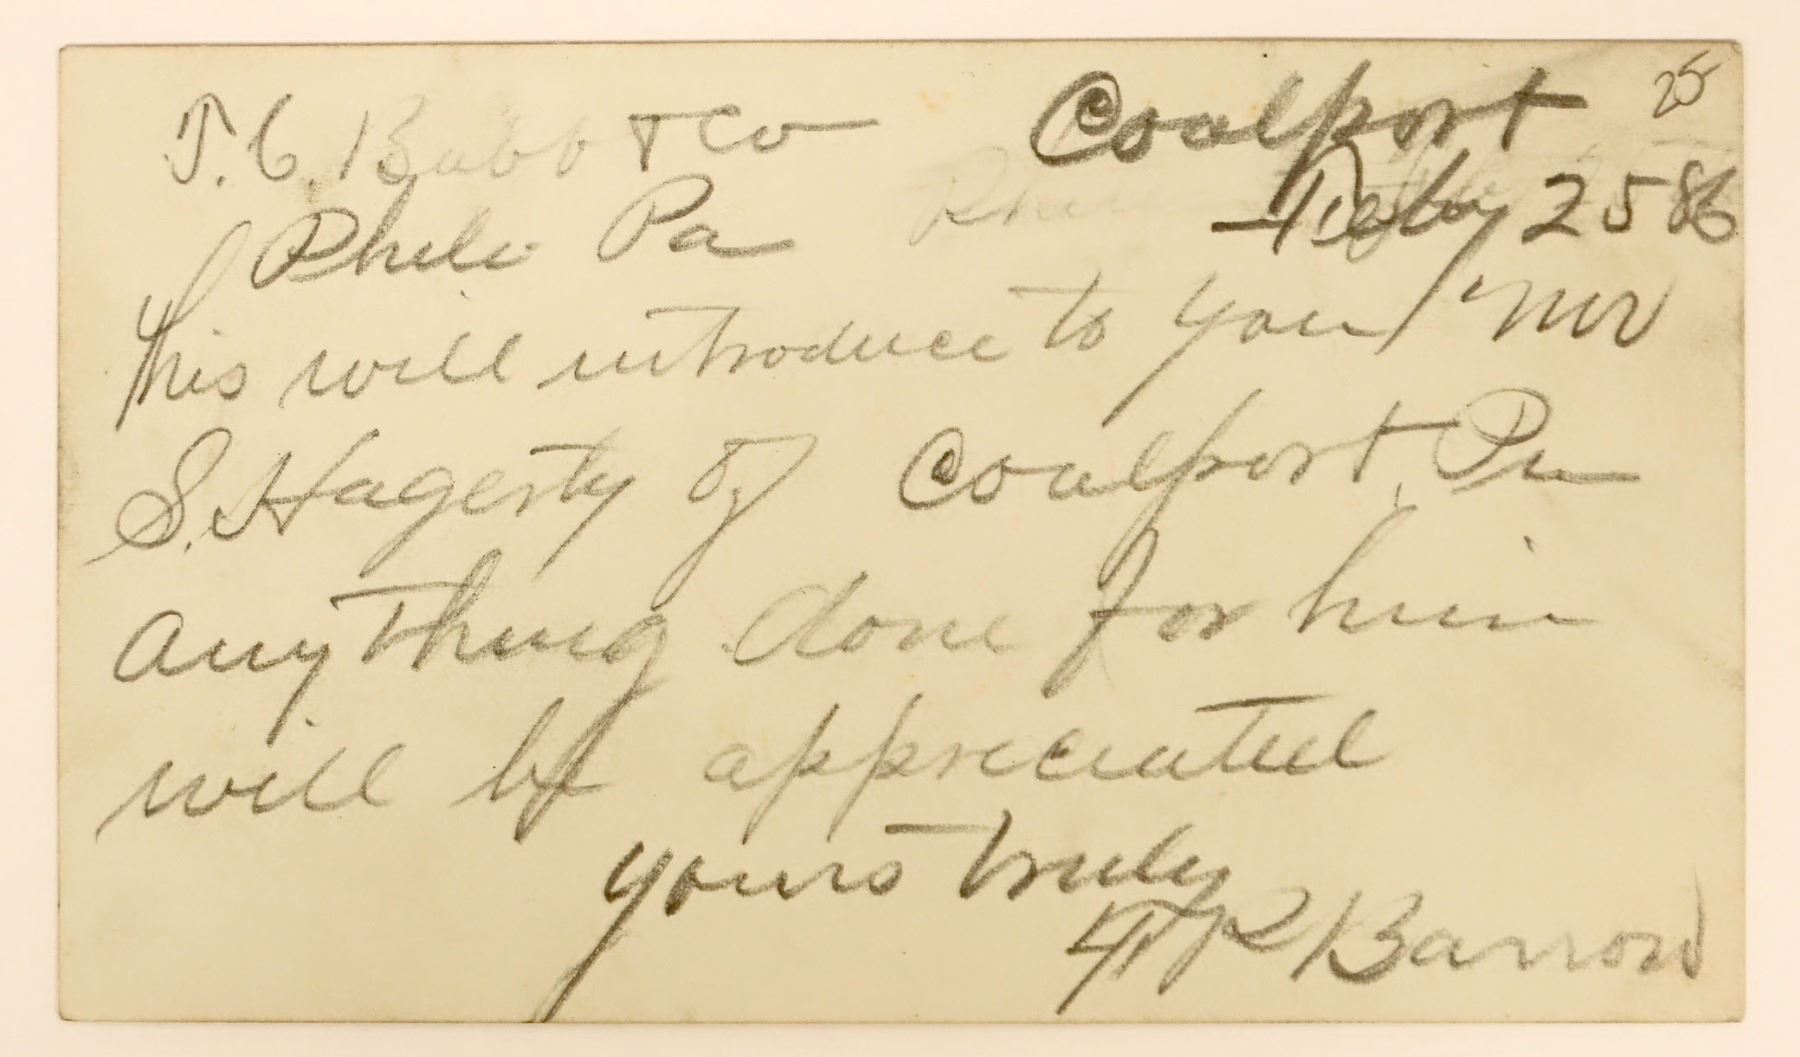 25
J. C. Babb & Co Coalport
Phila Pa Feby 25 86
This will introduce to you Mr
S. Hagerty of Coalport, Pa
anything done for him
will be appreciated
yours truly
Barrow